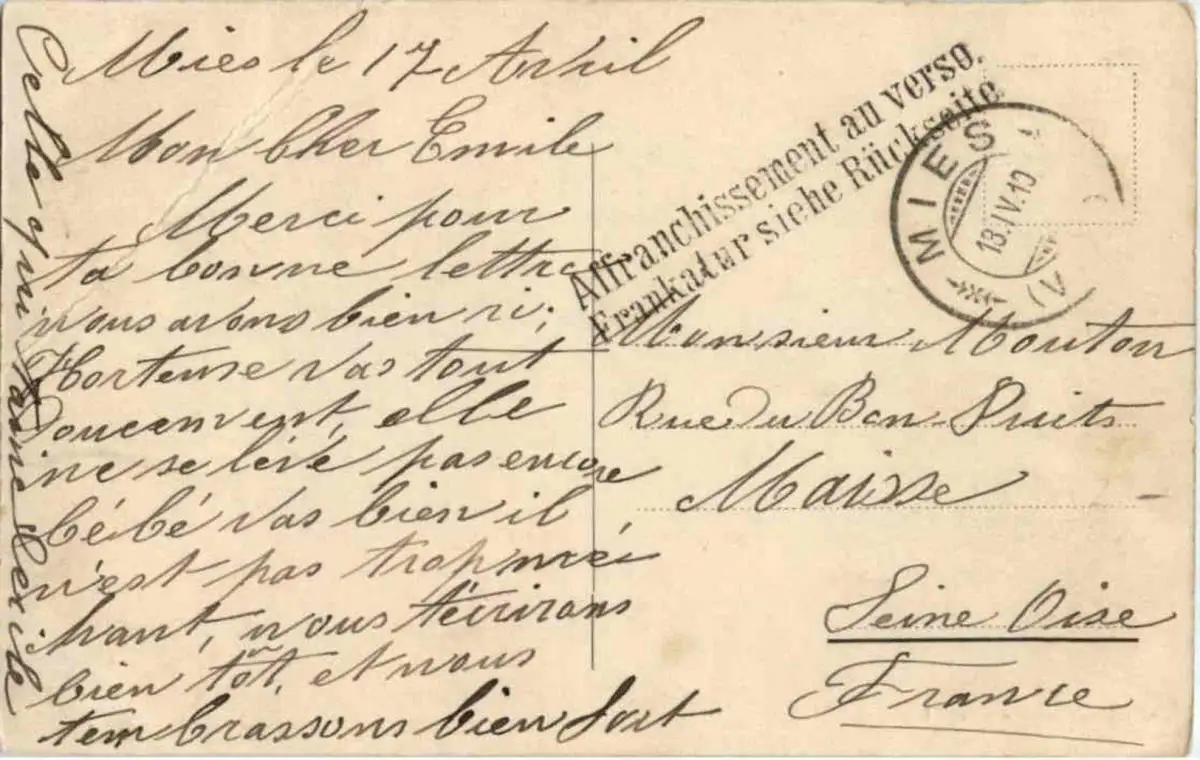 Mies le 17 Avril
Mon Cher Emile
Merci pour
ta bonne lettre
nous avons bien ri;
Hortense vas tout
Doucement, elle
ne se lève pas encore
bébé vas bien il
n'est pas trop mé
chant, nous t'écrirons
bien tôt, et nous
t'embrassons bien fort
Celle qui t'aime
Affranchissement au verso.
Frankatur siehe Rückseite.
MIES
18.IV.10
Monsieur Mouton
Rue Du Bon Puits
Maisse
Seine Oise
France